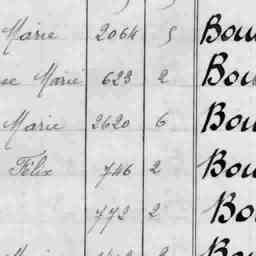 Marie 2064 5 Bou
se Marie 623 2 Bou
Marie 2620 6 Bou
Félix 746 2 Bou
772 2 Bo